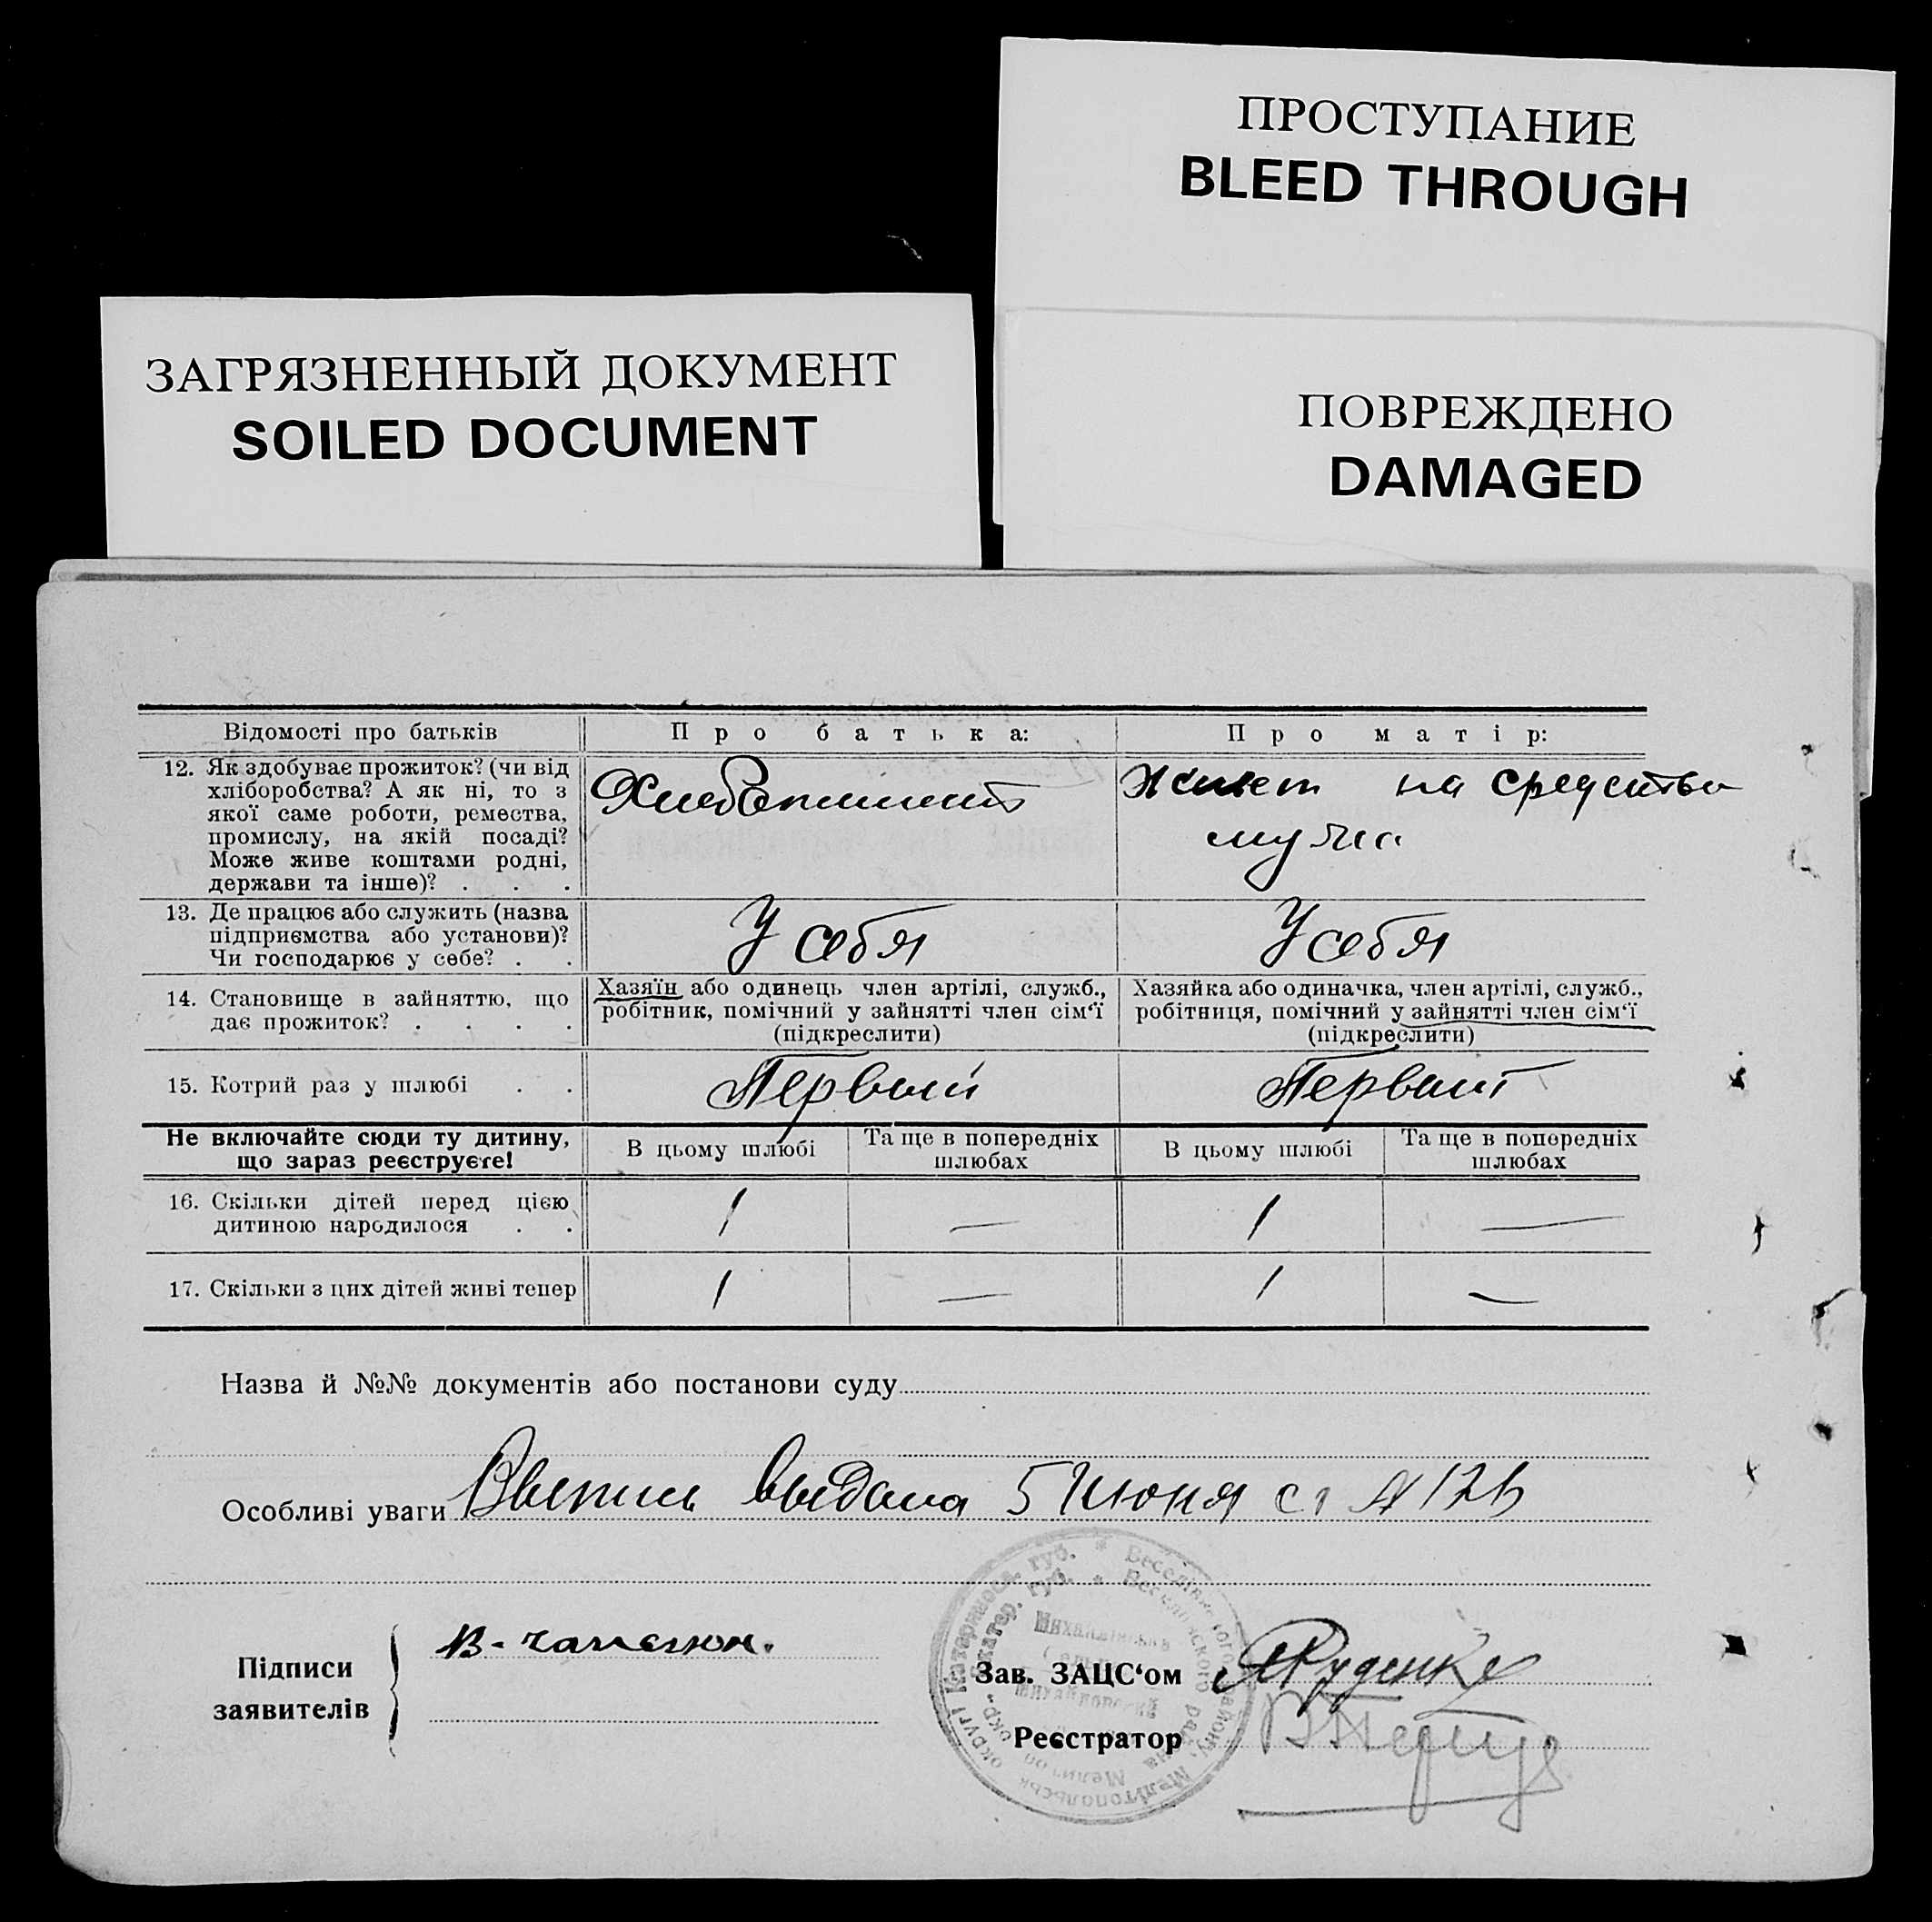 ПРОСТУПАНИЕ
BLEED THROUGH
ЗАГРЯЗНЕННЫЙ ДОКУМЕНТ
SOILED DOCUMENT
ПОВРЕЖДЕНО
DAMAGED
Відомості про батьків
Про батька:
Про матір:
12. Як здобуває прожиток? (чи від
хліборобства? А як ні, то з
якої саме роботи, ремества,
промислу, на якій посаді?
Може живе коштами родні,
держави та інше)? . . .
Хлебопашест
Живет на средства
мужа
13. Де працює або служить (назва
підприємства або установи)?
Чи господарює у себе? . .
У себя
У себя
14. Становище в зайняттю, що
дає прожиток? . . . .
Хазяїн або одинець член артілі, служб.,
робітник, помічний у зайнятті член сім‘ї
(підкреслити)
Хазяйка або одиначка, член артілі, служб.,
робітниця, помічний у зайнятті член сім‘ї
(підкреслити)
15. Котрий раз у шлюбі . .
Первый
Первый
Не включайте сюди ту дитину,
що зараз реєструєте!
В цьому шлюбі
Та ще в попередніх
шлюбах
В цьому шлюбі
Та ще в попередніх
шлюбах
16. Скільки дітей перед цією
дитиною народилося . .
1 — 1 —
17. Скільки з цих дітей живі тепер
1 — 1 —
Назва й №№ документів або постанови суду
Особливі уваги Выпись выдана 5 Июня
Підписи
заявителів
Зав. ЗАЦС‘ом Руденко
Реєстратор